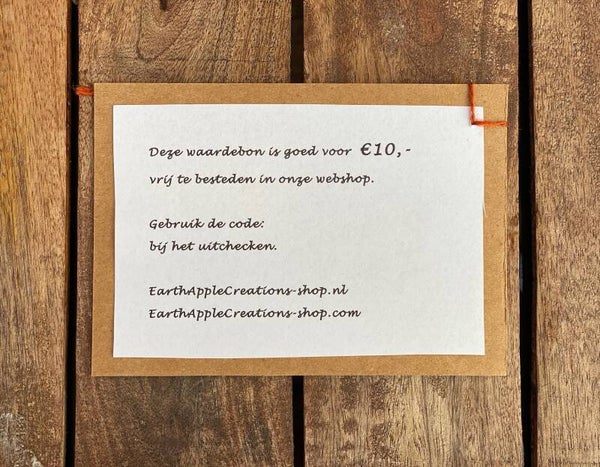 Deze waardebon is goed voor €10,-
vrij te besteden in onze webshop.
Gebruik de code:
bij het uitchecken.
EarthAppleCreations-shop.nl
EarthAppleCreations-shop.com